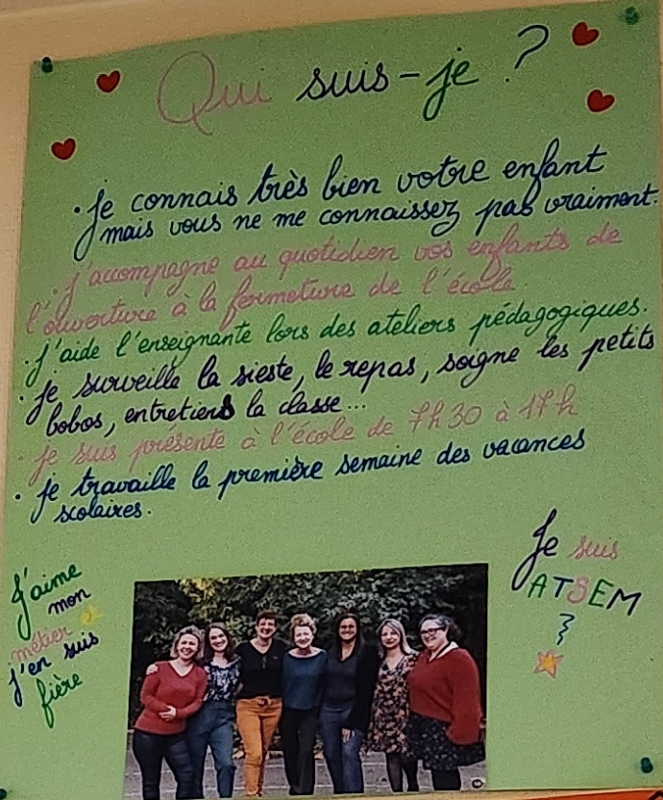 Qui suis-je ?
• Je connais très bien votre enfant
mais vous ne me connaissez pas vraiment.
• J'accompagne au quotidien vos enfants de
l'ouverture à la fermeture de l'école.
• J'aide l'enseignante lors des ateliers pédagogiques.
• Je surveille la sieste, le repas, soigne les petits
bobos, entretiens la classe...
• Je suis présente à l'école de 7h30 à 17h
• Je travaille la première semaine des vacances
scolaires.
J'aime
mon
métier et
j'en suis
fière
Je suis
ATSEM